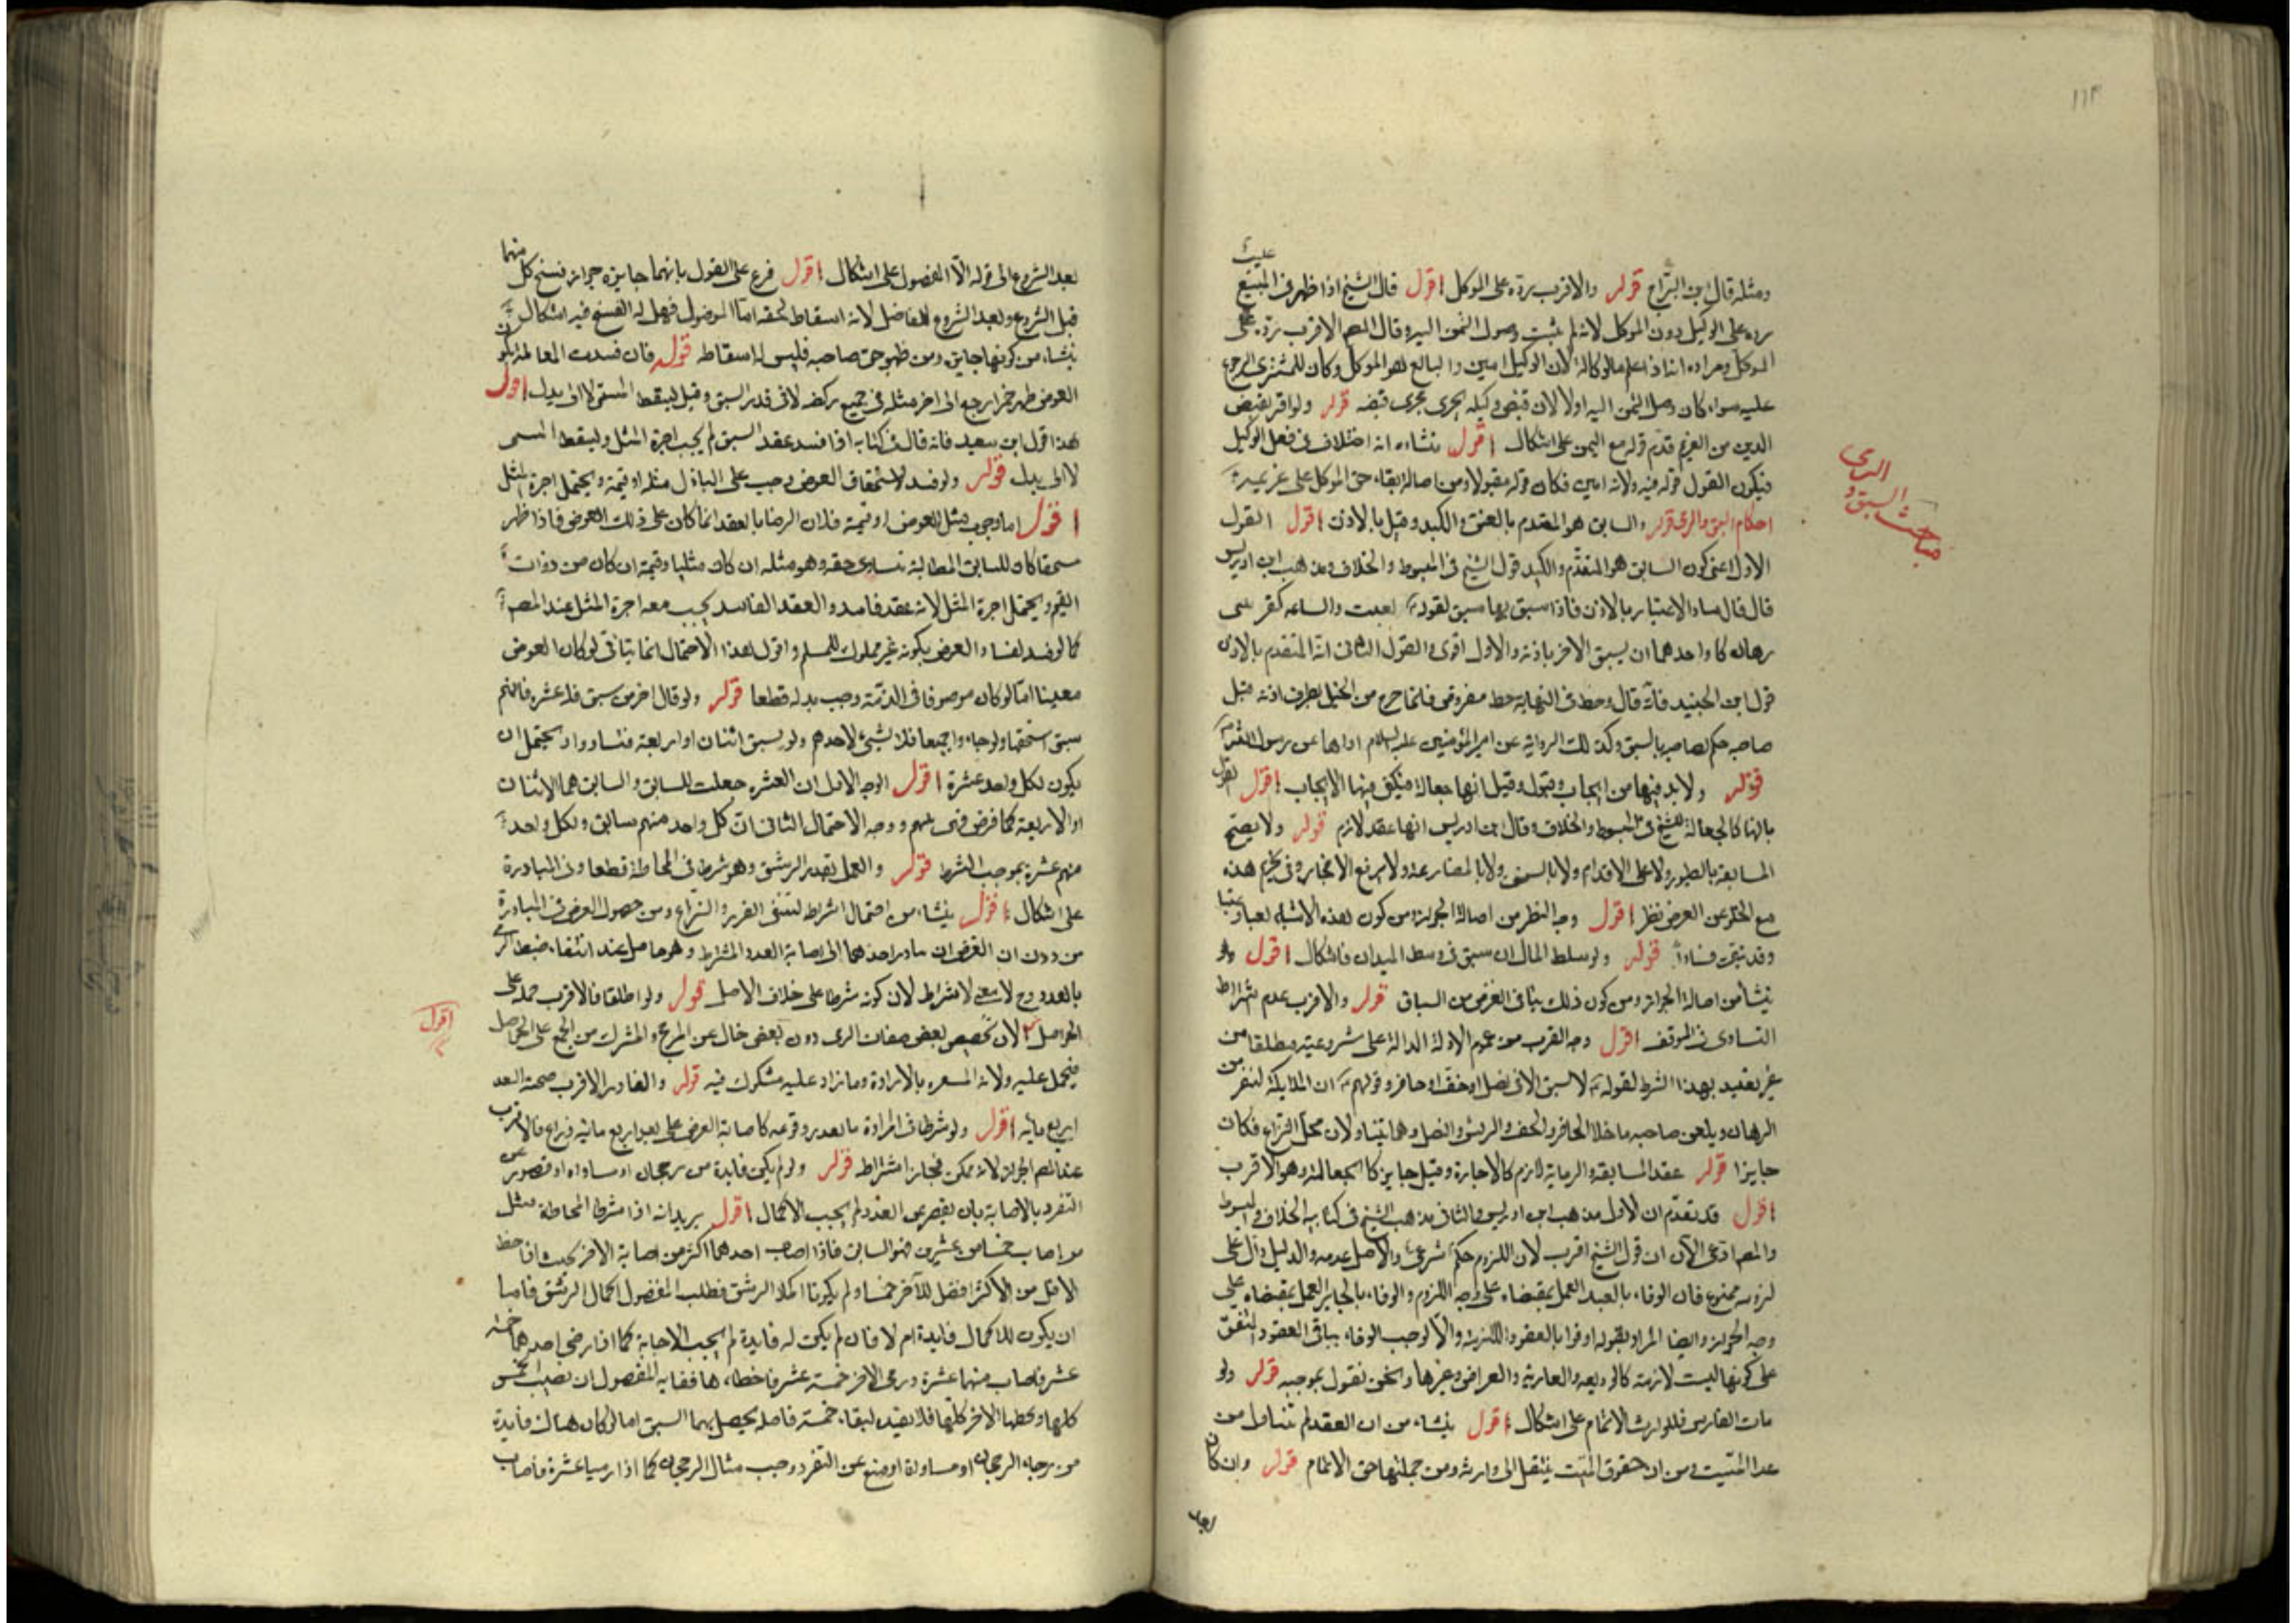 ١١٣
ومثله قال ابن البراج قوله والاقرب رده على الموكل اقول قال الشيخ اذا ظهر في المبيع عيب
رده على الوكيل دون الموكل لانه لم يثبت وصول الثمن اليه وقال المصم الاقرب رده على
الموكل ومراده انه اذا علم بالوكالة لان الوكيل امين والبايع هو الموكل وكان للمشتري الرجوع
عليه سواء كان وصل الثمن اليه اولا لان قبض وكيله يجري مجرى قبضه قوله ولو اقر بقبض
الدين من الغريم قدم قوله مع اليمين على اشكال اقول ينشاء انه اختلاف في فعل الوكيل
فيكون القول قوله فيه ولانه امين فكان قوله مقبولا ومن اصالة بقاء حق الموكل على غريمه
احكام السبق والرمي قوله والسابق هو المتقدم بالعنق والكتد وقيل بالاذن اقول القول
مباحث السبق و الرمي
الاول اعني كون السابق هو المتقدم والكتد قول الشيخ في المبسوط والخلاف ومذهب ابن ادريس
قال الاعتبار بالاذن فاذا سبق بها سبق لقوله بعثت والساعة كفرسى
رهان كاد احدهما ان يسبق الاخر باذنه والاول اقوى والقول الثاني انه المتقدم بالاذن
قول ابن الجنيد فانه قال وحط في النهاية حط معروض فلما خرج من الخيل بطرف اذنه قبل
صاحبه حكم لصاحبه بالسبق وكذلك الرواية عن امير المؤمنين عليه السلام عن رسول الله
قوله ولا بد فيها من ايجاب وقبول وقيل انها جعالة فيكفي فيها الايجاب اقول القول
بانها كالجعالة للشيخ في المبسوط والخلاف وقال ابن ادريس انها عقد لازم قوله ولا يصح
المسابقة بالطيور ولا على الاقدام ولا بالسفن ولا بالمصارعة ولا برفع الاحجار وفي تحريم هذه
مع الخلو عن العوض نظر اقول وجه النظر من اصالة الجواز ومن كون هذه الاشياء لعبا وعبثا
وقد نبغي قوله ولو سلط المال ان سبق في وسط الميدان فاشكال اقول
ينشأ من اصالة الجواز ومن كون ذلك ينافي الغرض من السباق قوله والاقرب عدم اشتراط
التساوي في الموقف اقول وجه القرب من عموم الادلة الدالة على شروعيته مطلقا من
غير تقييد بهذا الشرط لقوله لا سبق الا في نصل او خف او حافر وقولهم ان الملايكة لتنفر من
الرهان ويلعن صاحبه ما خلا الحافر والخف والريش والنصل وهما يتناولان محل النزاع فكان
جايزا قوله عقد المسابقة والرماية لازم كالاجارة وقيل جايز كالجعالة وهو الاقرب
اقول قد تقدم ان الاول مذهب ابن ادريس والثاني مذهب الشيخ في كتابيه الخلاف والمبسوط
والمصم ادعى الآن ان قول الشيخ اقرب لان اللزوم حكم شرعي والاصل عدمه والدليل دال على
لزومه ممنوع فان الوفاء بالعبد العمل بمقتضاه على وجه اللزوم والوفاء بالجايز العمل بمقتضاه على
وجه الجواز وايضا المراد بقوله اوفوا بالعقود اللازمة والا لوجب الوفاء بباقي العقود المتفق
على كونها ليست لازمة كالوديعه والعارية والعراض وغيرها ونحن نقول بموجبه قوله ولو
مات الفارس فللوارث الاتمام على اشكال اقول ينشاء من ان العقد لم تناول من
عدا الميت ومن ان حقوق الميت ينتقل الى وارثه ومن جملتها حق الاتمام قوله وان كان
بعد الشروع الى قوله الا المفضول على اشكال اقول فرع على القول بانهما جايزه جواز فسخ كل منهما
قبل الشروع وبعد الشروع للفاضل لانه اسقاط لحقه اما المفضول فهل له الفسخ فيه اشكال
ينشاء من كونها جايزه ومن ظهور حق صاحبه فليس له اسقاطه قوله فان فسدت المعاملة بكون
العوض ظهر خمرا رجع الى اجرة مثله في جميع ركضه لا في قدر السبق وقيل يسقط المسمى لا الى بدل اقول
هذا قول ابن سعيد فانه قال في كتابه اذا فسد عقد السبق لم يجب اجرة المثل وليسقط المسمى
لا الى بدل قوله ولو فسد لاستحقاق العوض وجب على الباذل مثله او قيمته ويحتمل اجرة المثل
اقول اما وجوب مثل العوض او قيمته فلان الرضا بالعقد انما كان على ذلك العوض فاذا ظهر
مستحقا كان للسابق المطالبة بمساوي حقه وهو مثله ان كان مثليا وقيمته ان كان من ذوات
القيم ويحتمل اجرة المثل لانه عقد فاسد والعقد الفاسد يجب معه اجرة المثل عند المصم
كما لو فسد لفساد العوض بكونه غير مملوك للمسلم واقول هذا الاحتمال انما يتاتى لو كان العوض
معينا اما لو كان موصوفا في الذمة وجب بدله قطعا قوله ولو قال اخر من سبق فله عشره فايهم
سبق استحقها ولو جاءوا جميعا فلا شيء لاحدهم ولو سبق اثنان او اربعة فتساووا احتمل ان
يكون لكل واحد عشرة اقول الوجه الاول ان العشره جعلت للسابق والسابق هما الاثنان
او الاربعة كما فرض فهي بينهم ووجه الاحتمال الثاني ان كل واحد منهم سابق ولكل واحد
منهم عشرة بموجب الشرط قوله والعمل بقدر الرشق وهو شرط في المحاطة قطعا وفي المبادرة
على اشكال اقول ينشاء من احتمال اشتراط لينتفي الغرر والنزاع ومن حصول الغرض في المبادرة
من دون ان الغرض ان بادر احدهما الى اصابة العدد المشترط وهو حاصل عند انتفاء ضبط الرمي
بالعدد وح لا معنى لاشتراط لان كونه شرطا على خلاف الاصل قوله ولو اطلقا فالاقرب حمله على
الحوابى لان تخصيص بعض صفات الرمى دون بعض خال عن المرجح والمشترك من الجمع على الحواصل
اقول
فيحمل عليه ولانه بالارادة وما زاد عليه مشكوك فيه قوله والقادر الاقرب صحة البعد
اربع مايه اقول ولو شرطا في المراده ما بعد وقوعه كاصابة الغرض على بعد اربع ماية ذراع فالاقرب
عند المصم الجواز لانه ممكن فجاز اشتراطه قوله ولو لم يكن فايدة من رجحان او مساواة او قصور عن
التفرد بالاصابة بان يقصر عن العدد لم يجب الاكمال اقول يريد انه اذا شرطا المحاطة مثل
من اصاب خمسا من عشرين فهو السابق فاذا اصاب احدهما اكثر من اصابة الاخر بحيث اذا حط
الاقل من الاكثر افضل للآخر خمسا ولم يكونا اكملا الرشق فطلب المفضول اكمال الرشق فاما
ان يكون للاكمال فايدة ام لا فان لم يكن له فايدة لم يجب الاجابة كما اذا رمى احدهما خمسة
عشر فاصاب منها عشرة ورمى الاخر خمسة عشر فاخطاءها فغاية المفضول ان يصيب الخمس
كلها ويخطيها الاخر كلها فلا يفيد لبقاء خمسة فاصله يحصل بهما السبق اما لو كان هناك فايدة
من رجاء الرجحان او مساواة او منع عن التفرد وجب مثال الرجحان كما اذا رميا عشرة فاصاب